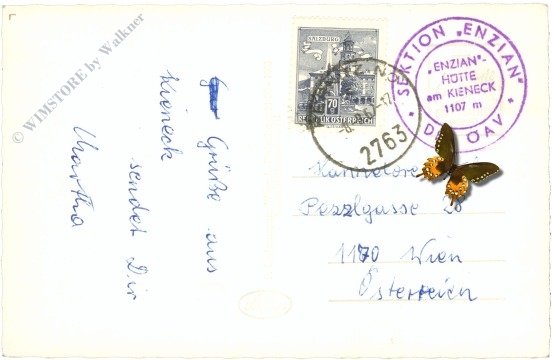 © WIMSTORE by Walkner
Grüße aus
Kieneck
sendet Dir
Martha
SALZBURG
70
REPUBLIK ÖSTERREICH
PERNITZ, N.Ö.
2763
SEKTION „ENZIAN"
„ENZIAN"-
HÜTTE
am KIENECK
1107 m
D. ÖAV
Hannelore
Pezzlgasse 26
1170 Wien
Österreich